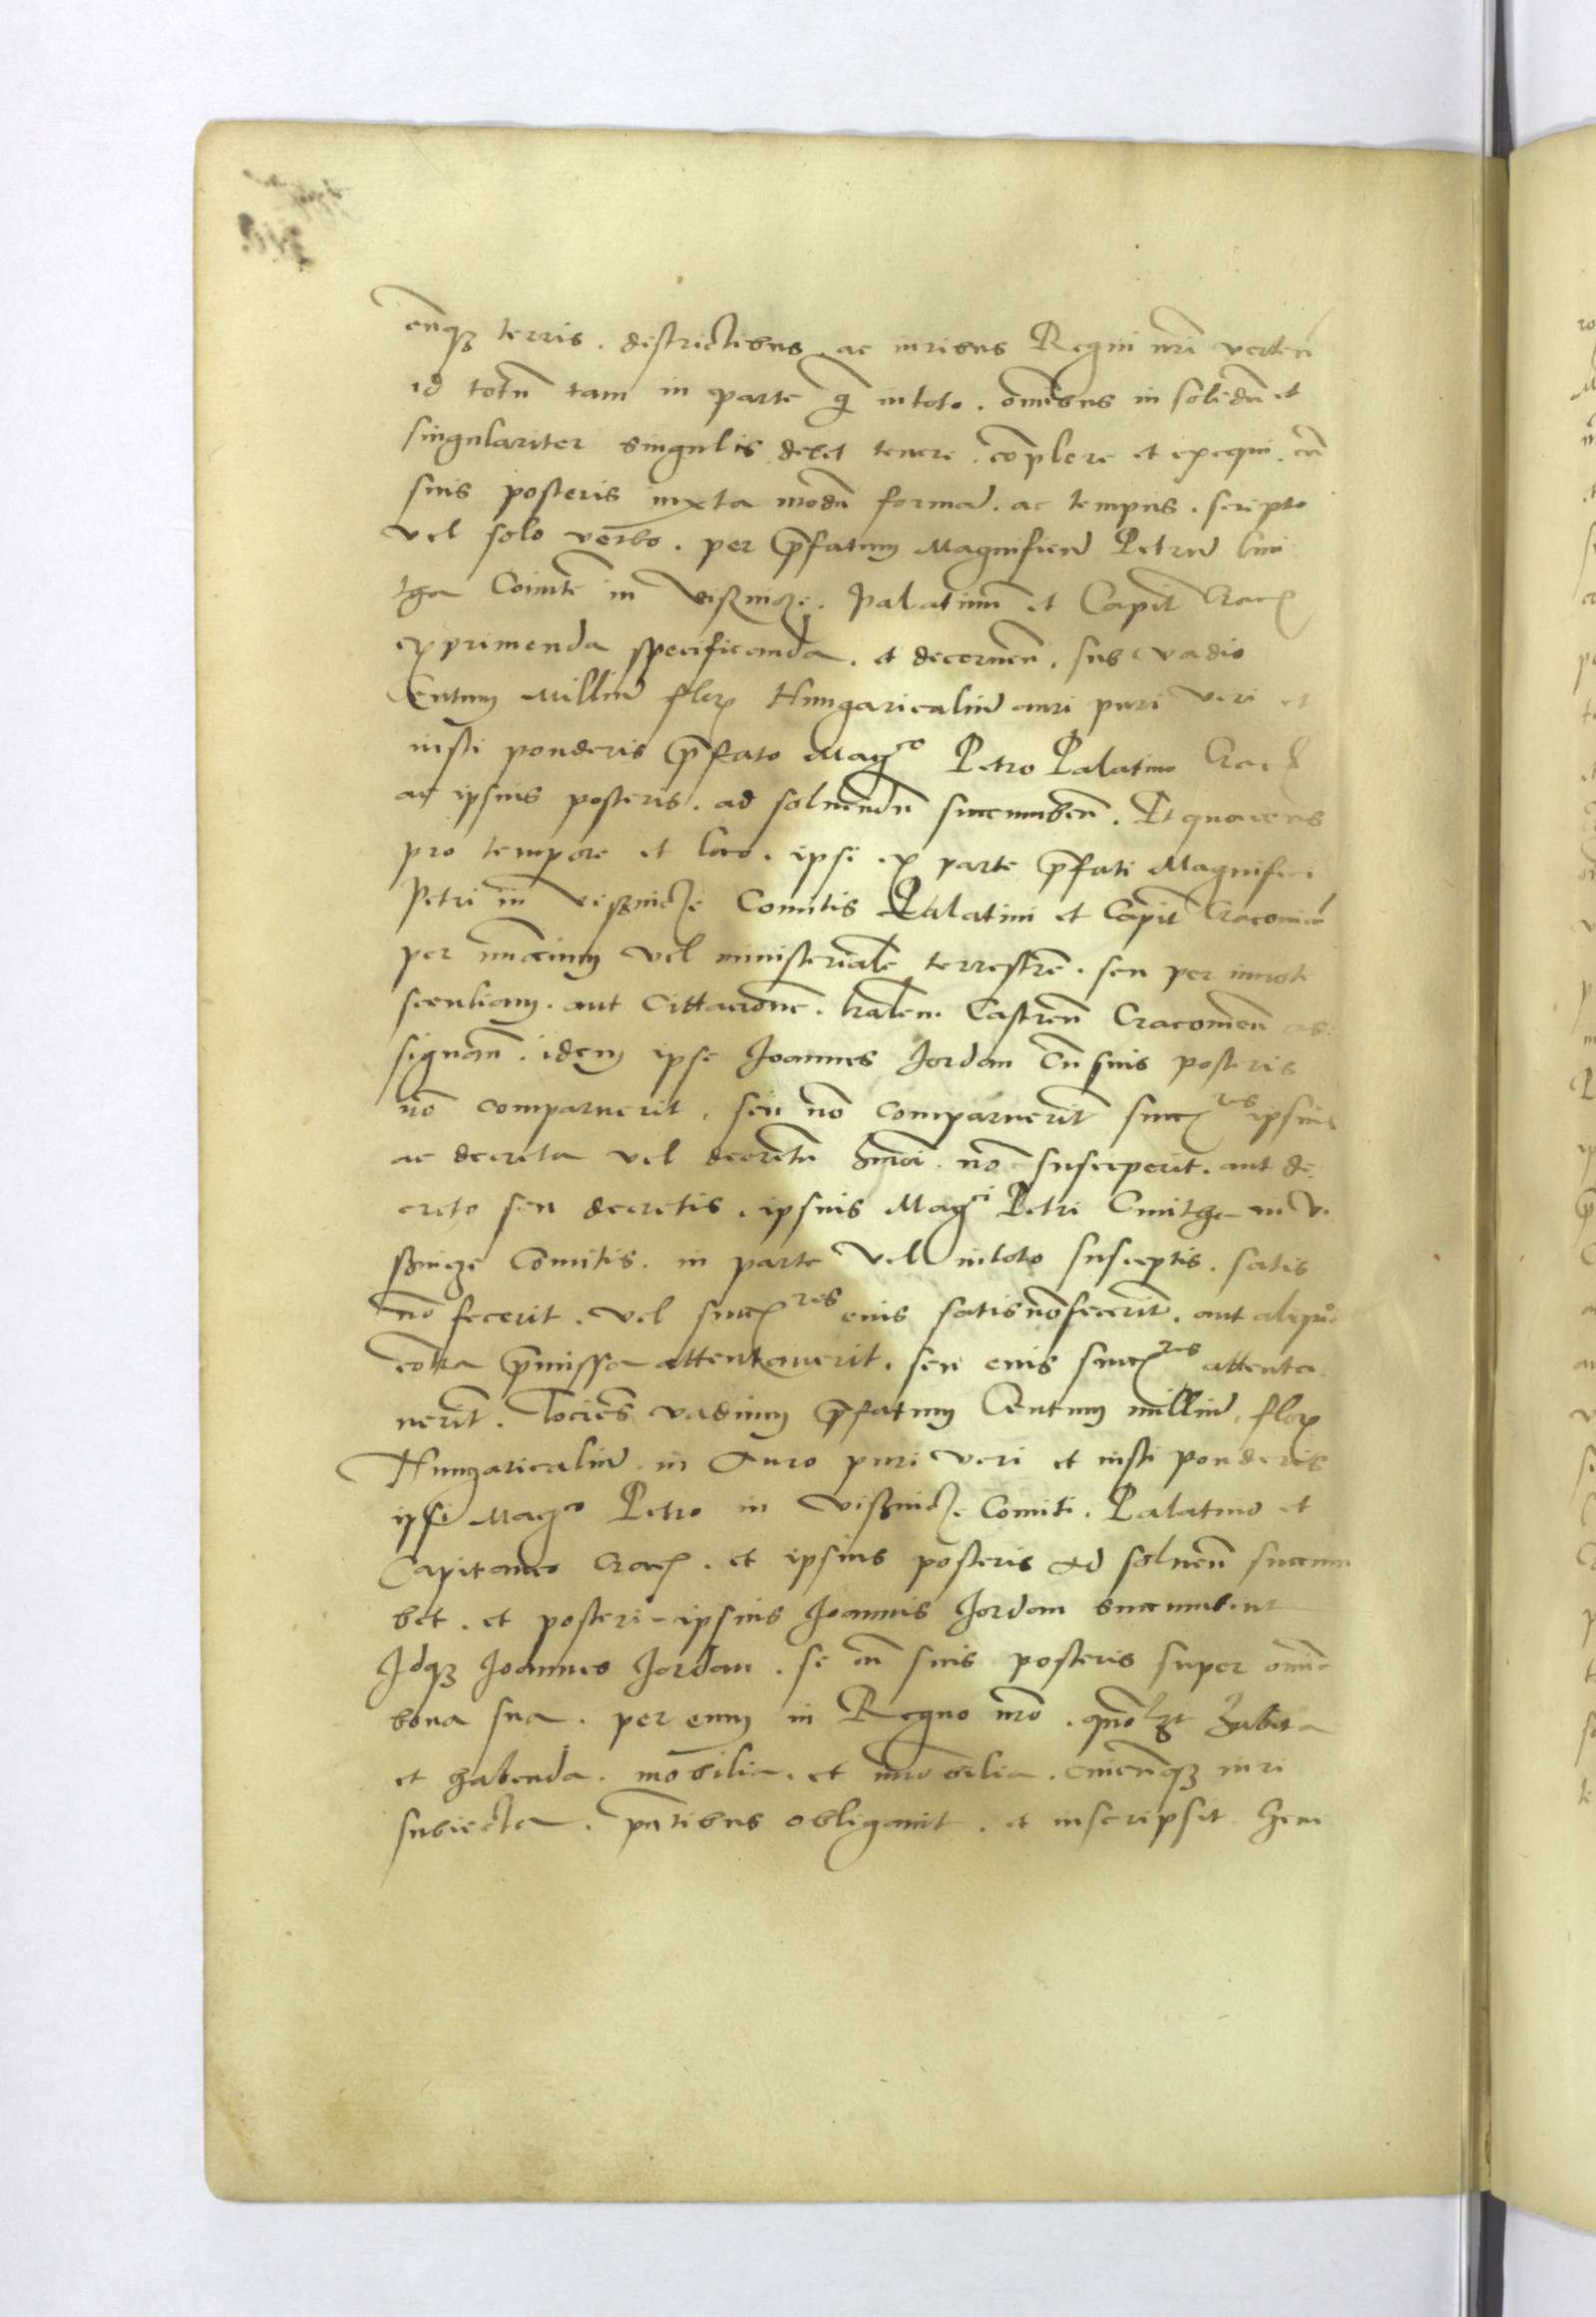 cunqȝ terris . districtibus . ac iuribus Regni nrī verten̄
id totū tam in parte q̄ in toto . omībus in solidū et
singulariter singulis debet tenere . cōplere et exequi . cū
suis posteris iuxta modū formā . ac tempus . scripto
vel solo verbo . per p̄fatum Magnificū Petrū Kmi
tha Comitē in visnicze . Palatinū et Capit̄ Crac̄
exprimenda specificanda . et decernen̄ . sub vadio
Centum Milliū flor̄ Hungaricaliū auri puri veri et
iusti ponderis p̄fato Mag^co Petro Palatino Crac̄
ac ipsius posteris . ad soluendū succumben̄ . Et quociens
pro tempore et loco . ipsi . ex parte p̄fati Magnifici
Petri in visnicze Comitis Palatini et Capit̄ Cracouien̄
per nuncium vel ministerialē terrestrē . seu per innote
scentiam . aut Cittacionē . lr̄alem Castren̄ Cracouien̄ as
signan̄ . idem ipse Joannes Jordan cū suis posteris
nō comparuerit . seu nō comparuerīt succ^res ipsius
ac decreta vel decretū hmōi . nō susceperit . aut de
creto seu decretis . ipsius Mag^ci Petri Cmithe in vi
sznicze Comitis . in parte vel in toto susceptis . satis
nō fecerit . vel succ^res eius satis nō fecerīt . aut aliquid
cōtra p̄missa attentauerit . seu eius succ^res attenta
uerīt . tociēs vadium p̄fatum Centum milliū flor̄
Hungaricaliū in Auro puri veri et iusti ponderis
ipsi Mag^co Petro in visznicze Comiti . Palatino et
Capitaneo Crac̄ . et ipsius posteris ad soluen̄ succum
bet . et posteri ipsius Joannis Jordan succumbent
Idqȝ Joannes Jordan . se cū suis posteris super omnia
bona sua . per eum in Regno nrō . quōlȝt habita
et habenda . mobilia . et immobilia . cuicunqȝ iuri
subiecta . pn̄tibus obligauit . et inscripsit . harū